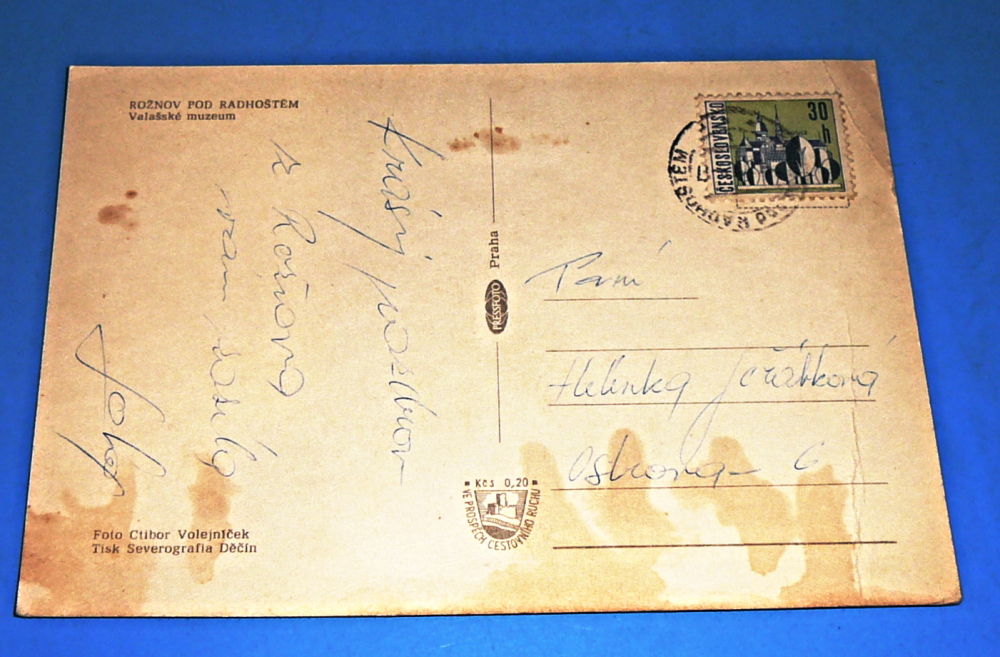 ROŽNOV POD RADHOŠTĚM
Valašské muzeum
Krásný pozdrav
z Rožnova
vam
Foto Ctibor Volejníček
Tisk Severografia Děčín
PRESSFOTO Praha
Kčs 0,20
VE PROSPĚCH CESTOVNÍHO RUCHU
ČESKOSLOVENSKO
30 h
POD RADHOŠTĚM
Paní
Helenka Jeřábková
6